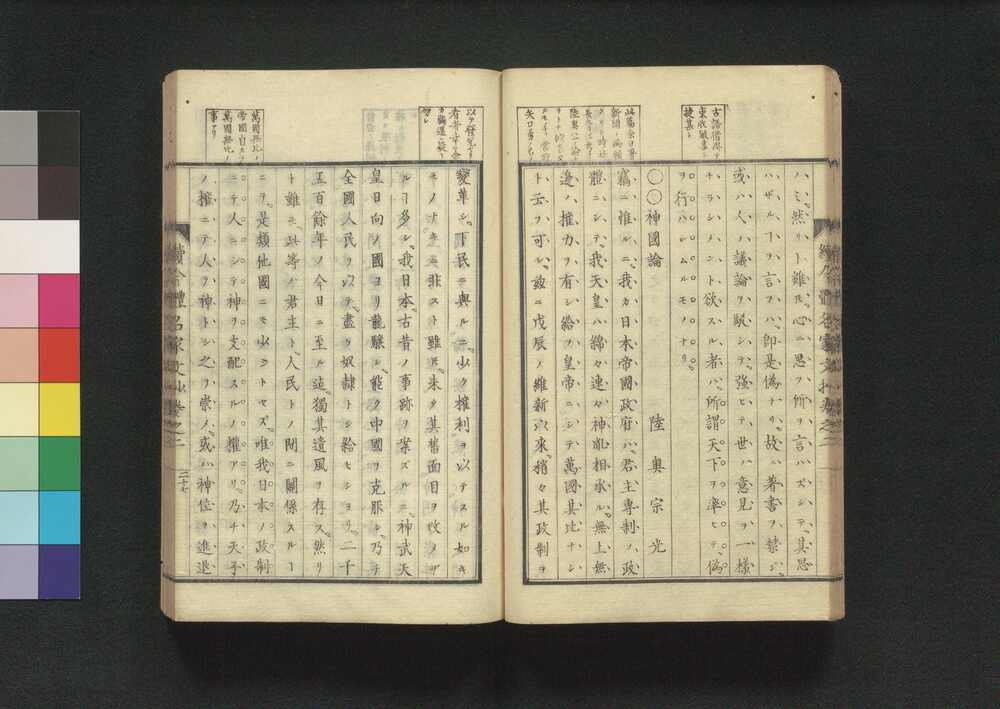 ハ、ミ然リト雖𪜈心ニ思フ所ヲ言ハズシテ其思
ハザル丁ヲ言フハ即是偽ナリ故ニ著書ヲ禁シ
或ハ人ノ議論ヲ駁シテ強ヒテ世ノ意見ヲ一様
ナラシメント欲スル者ハ所謂天下ヲ率ヒテ偽
ヲ行ハシムルモノナリ
〇〇神國論 陸奥宗光
竊ニ惟ルニ我カ日本帝國政府ハ君主専制ノ政
體ニシテ我天皇ハ綿々連々神胤相承ル無上無
邊ノ權力ヲ有シ給フ皇帝ニシテ萬國其比ナシ
ト云フ可シ玆ニ戊辰ノ維新以來稍々其政制ヲ
變革シ下民ニ與ルニ少ク權利ヲ以テスル如キ
モノナキニ非スト雖𪜈未タ其舊面目ヲ改メザ
ル丁多シ我日本古昔ノ事跡ヲ案ズルニ神武天
皇日向ノ國ヨリ龍驤シ能ク中國ヲ克服シ乃チ
全國人民ヲ以テ盡ク奴隷トシ給ヒシヨリ二千
五百餘年ノ今日ニ至ル迄獨其遺風ヲ存ス然リ
ト雖𪜈此等ノ君主ト人民トノ間ニ關係スル丁
ニテ是類他國ニモ少シトセズ唯我日本ノ政制
ニテ人ニシテ神ヲ支配スルノ權アリ乃チ天子
ノ權ニテ人ヲ神トシ之ヲ崇メ或ハ神位ヲ進退
萬國無比ノ
帝國自カラ
萬國無比ノ
事アリ
續今體名家文抄卷之二